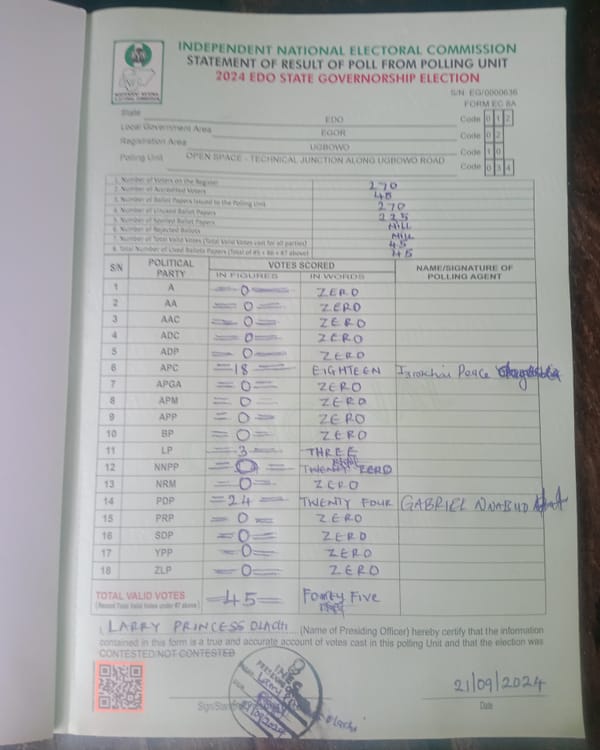 INDEPENDENT NATIONAL ELECTORAL COMMISSION
STATEMENT OF RESULT OF POLL FROM POLLING UNIT
2024 EDO STATE GOVERNORSHIP ELECTION
S/N: EG/0000636
FORM EC 8A
State EDO Code 0 1 2
Local Government Area EGOR Code 0 2
Registration Area UGBOWO Code 1 0
Polling Unit OPEN SPACE - TECHNICAL JUNCTION ALONG UGBOWO ROAD Code 0 3 4
1. Number of Voters on the Register 270
2. Number of Accredited Voters 45
3. Number of Ballot Papers Issued to the Polling Unit 270
4. Number of Unused Ballot Papers 225
5. Number of Spoiled Ballot Papers Nill
6. Number of Rejected Ballots Nill
7. Number of Total Valid Votes (Total Valid Votes cast for all parties) 45
8. Total Number of Used Ballot Papers (Total of #5 + #6 + #7 above) 45
S/N POLITICAL PARTY VOTES SCORED NAME/SIGNATURE OF POLLING AGENT
IN FIGURES IN WORDS
1 A =0= ZERO
2 AA =0= ZERO
3 AAC =0= ZERO
4 ADC =0= ZERO
5 ADP =0= ZERO
6 APC =18= EIGHTEEN Peace
7 APGA =0= ZERO
8 APM =0= ZERO
9 APP =0= ZERO
10 BP =0= ZERO
11 LP =3= THREE
12 NNPP =0= ZERO
13 NRM =0= ZERO
14 PDP =24= TWENTY FOUR GABRIEL
15 PRP =0= ZERO
16 SDP =0= ZERO
17 YPP =0= ZERO
18 ZLP =0= ZERO
TOTAL VALID VOTES =45= Forty Five
(Record Total Valid Votes under #7 above)
I LARRY PRINCESS OLACHI (Name of Presiding Officer) hereby certify that the information
contained in this form is a true and accurate account of votes cast in this polling Unit and that the election was
CONTESTED/NOT CONTESTED
21/09/2024
Date